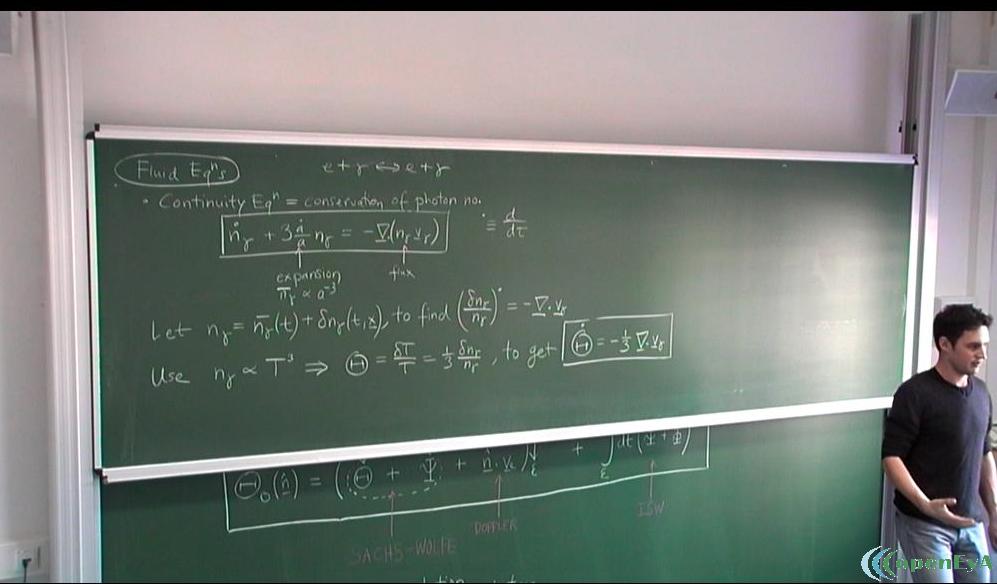 Fluid Eqⁿs
e + γ ↔ e + γ
• Continuity Eqⁿ = conservation of photon no.
ṅ_γ + 3 ȧ/a n_γ = -∇·(n_γ v_γ)
˙ ≡ d/dτ
expansion
n̄_γ ∝ a⁻³
flux
Let n_γ = n̄_γ(t) + δn_γ(t,x), to find (δn_γ/n_γ)˙ = -∇·v_γ
Use n_γ ∝ T³ ⇒ Θ = δT/T = 1/3 δn_γ/n_γ, to get Θ̇ = -1/3 ∇·v_γ
Θ₀(n̂) = (Θ + Ψ + n̂·v_e)_ε + ∫_ε dt(Ψ̇ + Φ̇)
SACHS-WOLFE
DOPPLER
ISW